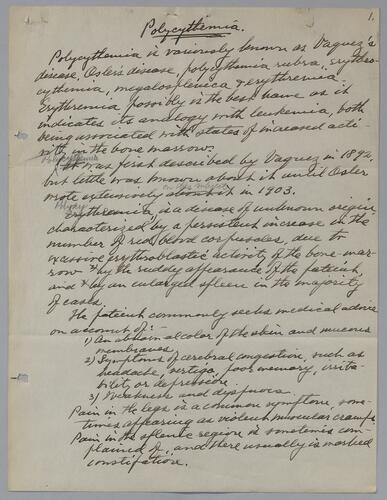 1.
Polycythemia.
Polycythemia is variously known as Vaquez's
disease, Osler's disease, polycythemia rubra, erythro-
cythemia, megalosplenica & erythremia.
Erythremia possibly is the best name as it
indicates its analogy with leukemia, both
being associated with states of increased acti-
vity in the bone marrow.
Polycythemia
It was first described by Vaquez in 1892,
but little was known about it until Osler
on this subject
wrote extensively about it in 1903.
Erythremia, is a disease of unknown origin,
characterized by a persistent increase in the
number of red blood corpuscles, due to
excessive erythroblastic activity of the bone-mar-
row & by the ruddy appearance of the patient,
and & by an enlarged spleen in the majority
of cases.
The patient commonly seeks medical advice
on account of:-
1) An abnormal color of the skin and mucous
membranes.
2) Symptoms of cerebral congestion, such as
headache, vertigo, poor memory, irrita-
bility or depression.
3) Weakness and dyspnoea.
Pain in the legs is a common symptom, some-
times appearing as violent muscular cramps.
Pain in the splenic region is sometimes com-
plained of, and there usually is marked
constipation.